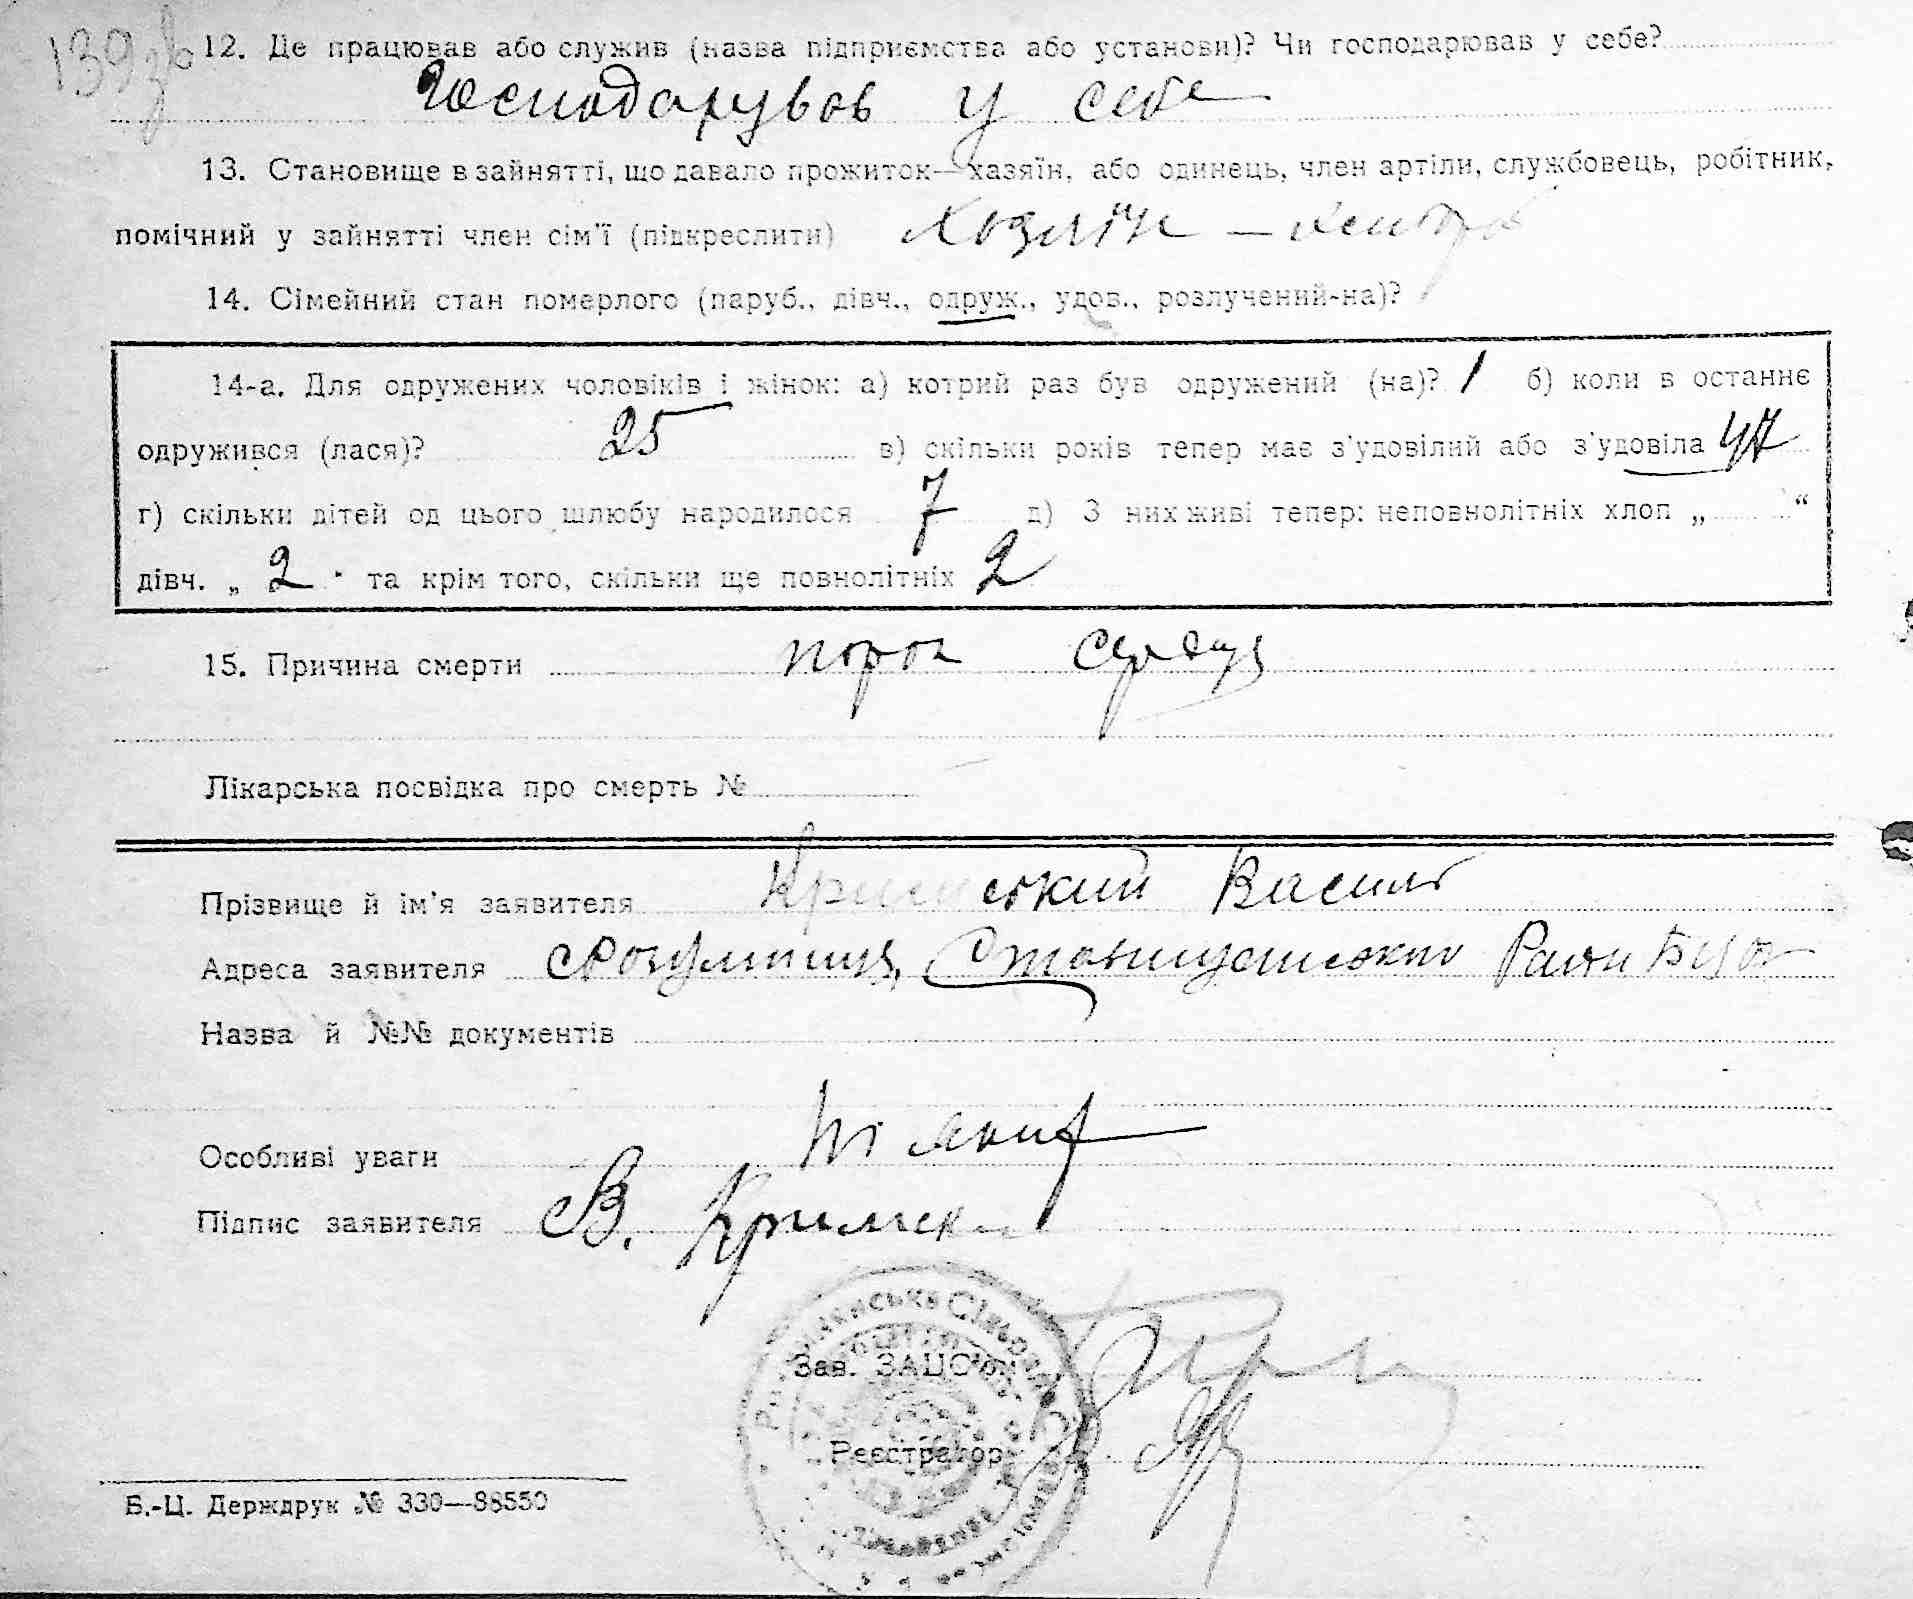 139зв
12. Де працював або служив (назва підприємства або установи)? Чи господарював у себе?
Господарував у себе
13. Становище в зайнятті, що давало прожиток—хазяїн, або одинець, член артіли, службовець, робітник,
помічний у зайнятті член сім'ї (підкреслити) Хозяїн —
14. Сімейний стан померлого (паруб., дівч., одруж., удов., розлучений-на)?
14-а. Для одружених чоловіків і жінок: а) котрий раз був одружений (на)? 1 б) коли в останнє
одружився (лася)? 25 в) скільки років тепер має з'удовілий або з'удовіла 47
г) скільки дітей од цього шлюбу народилося 7 д) З них живі тепер: неповнолітніх хлоп „ “
дівч. „ 2 " та крім того, скільки ще повнолітніх 2
15. Причина смерти порок сердця
Лікарська посвідка про смерть №
Прізвище й ім'я заявителя Кримський Василь
Адреса заявителя
Назва й №№ документів
Особливі уваги
Підпис заявителя В. Кримськ
Зав. ЗАЦС'ом
Реєстратор
Б.-Ц. Держдрук № 330—88550